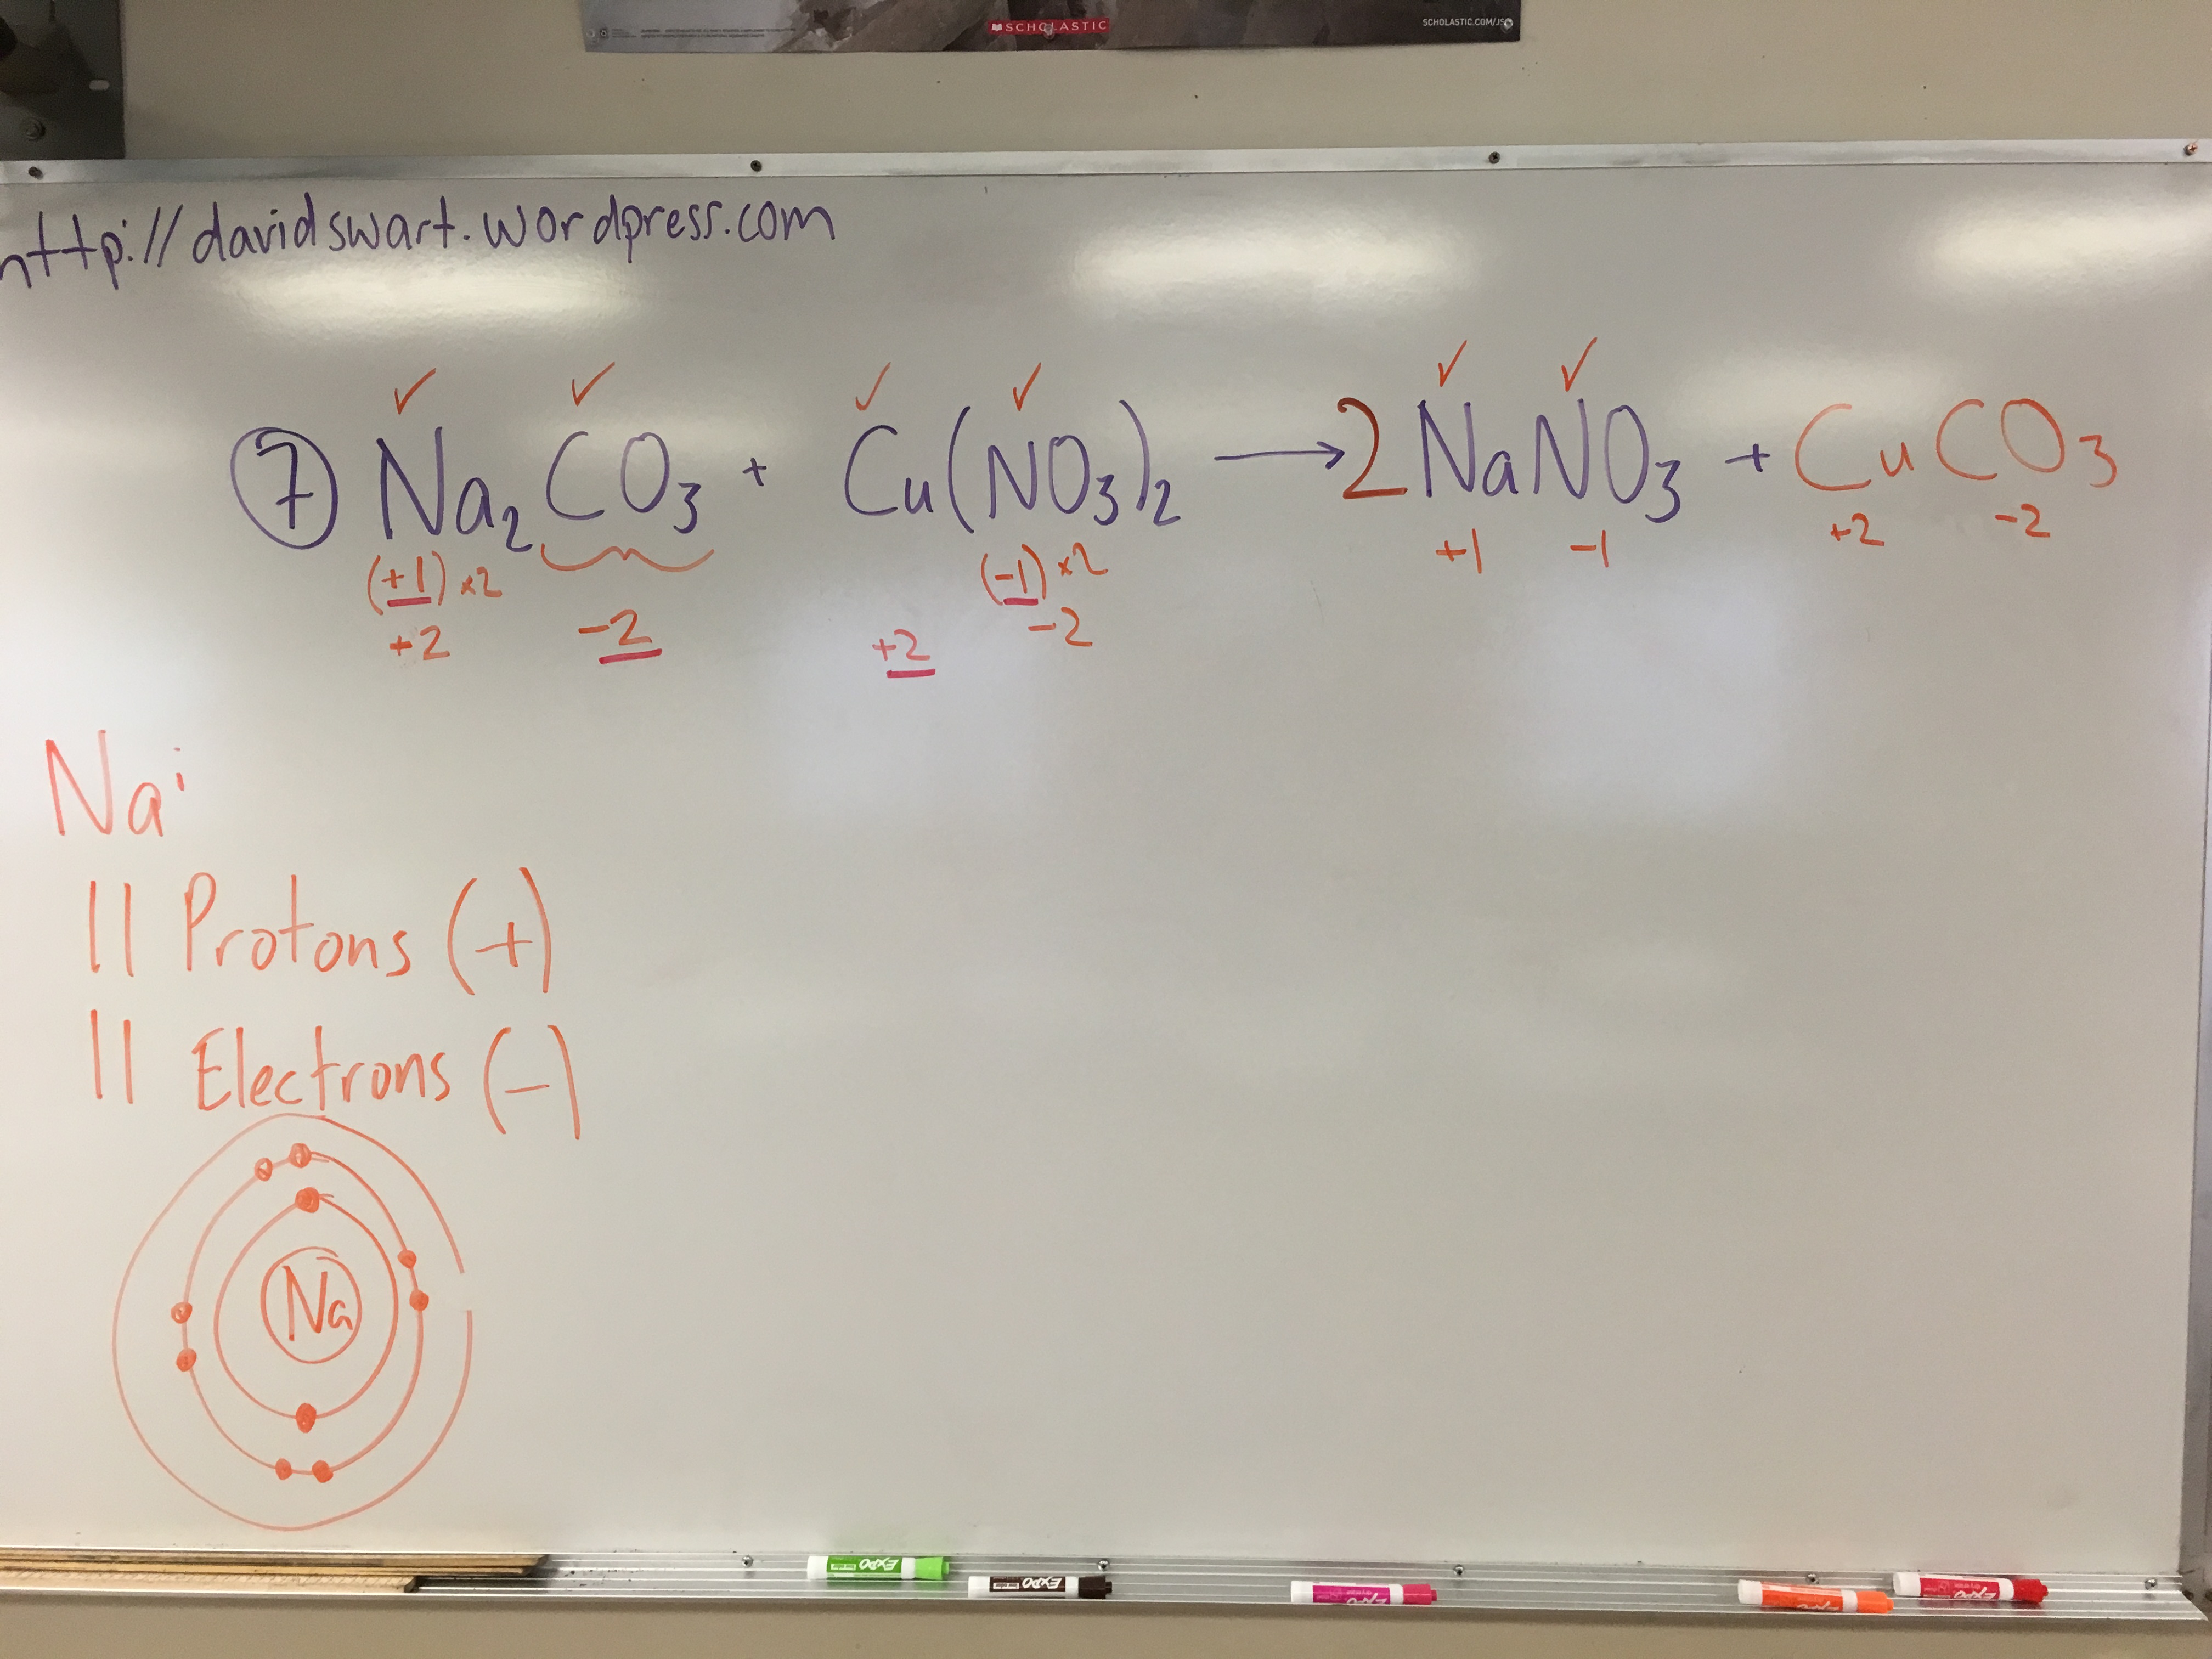 SCHOLASTIC
SCHOLASTIC.COM/
http://davidswart.wordpress.com
⑦ Na₂CO₃ + Cu(NO₃)₂ → 2NaNO₃ + CuCO₃
(+1)×2 (-1)×2 +1 -1 +2 -2
+2 -2 +2 -2
Na
11 Protons (+)
11 Electrons (-)
Na
EXPO
EXPO
EXPO
EXPO
EXPO